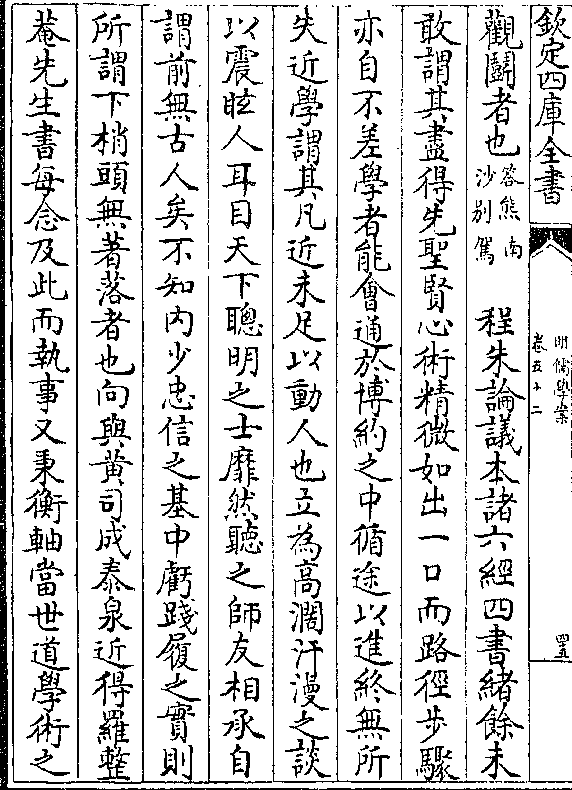 欽定四庫全書
明儒學案
卷五十二
觀鬭者也
答熊南
沙别駕
程朱論議本諸六經四書緒餘未
敢謂其盡得先聖賢心術精微如出一口而路徑步驟
亦自不差學者能會通於博約之中循途以進終無所
失近學謂其凡近未足以動人也立為高濶汗漫之談
以震眩人耳目天下聰明之士靡然聽之師友相承自
謂前無古人矣不知内少忠信之基中虧踐履之實則
所謂下梢頭無著落者也向與黄司成泰泉近得羅整
菴先生書每念及此而執事又秉衡軸當世道學術之